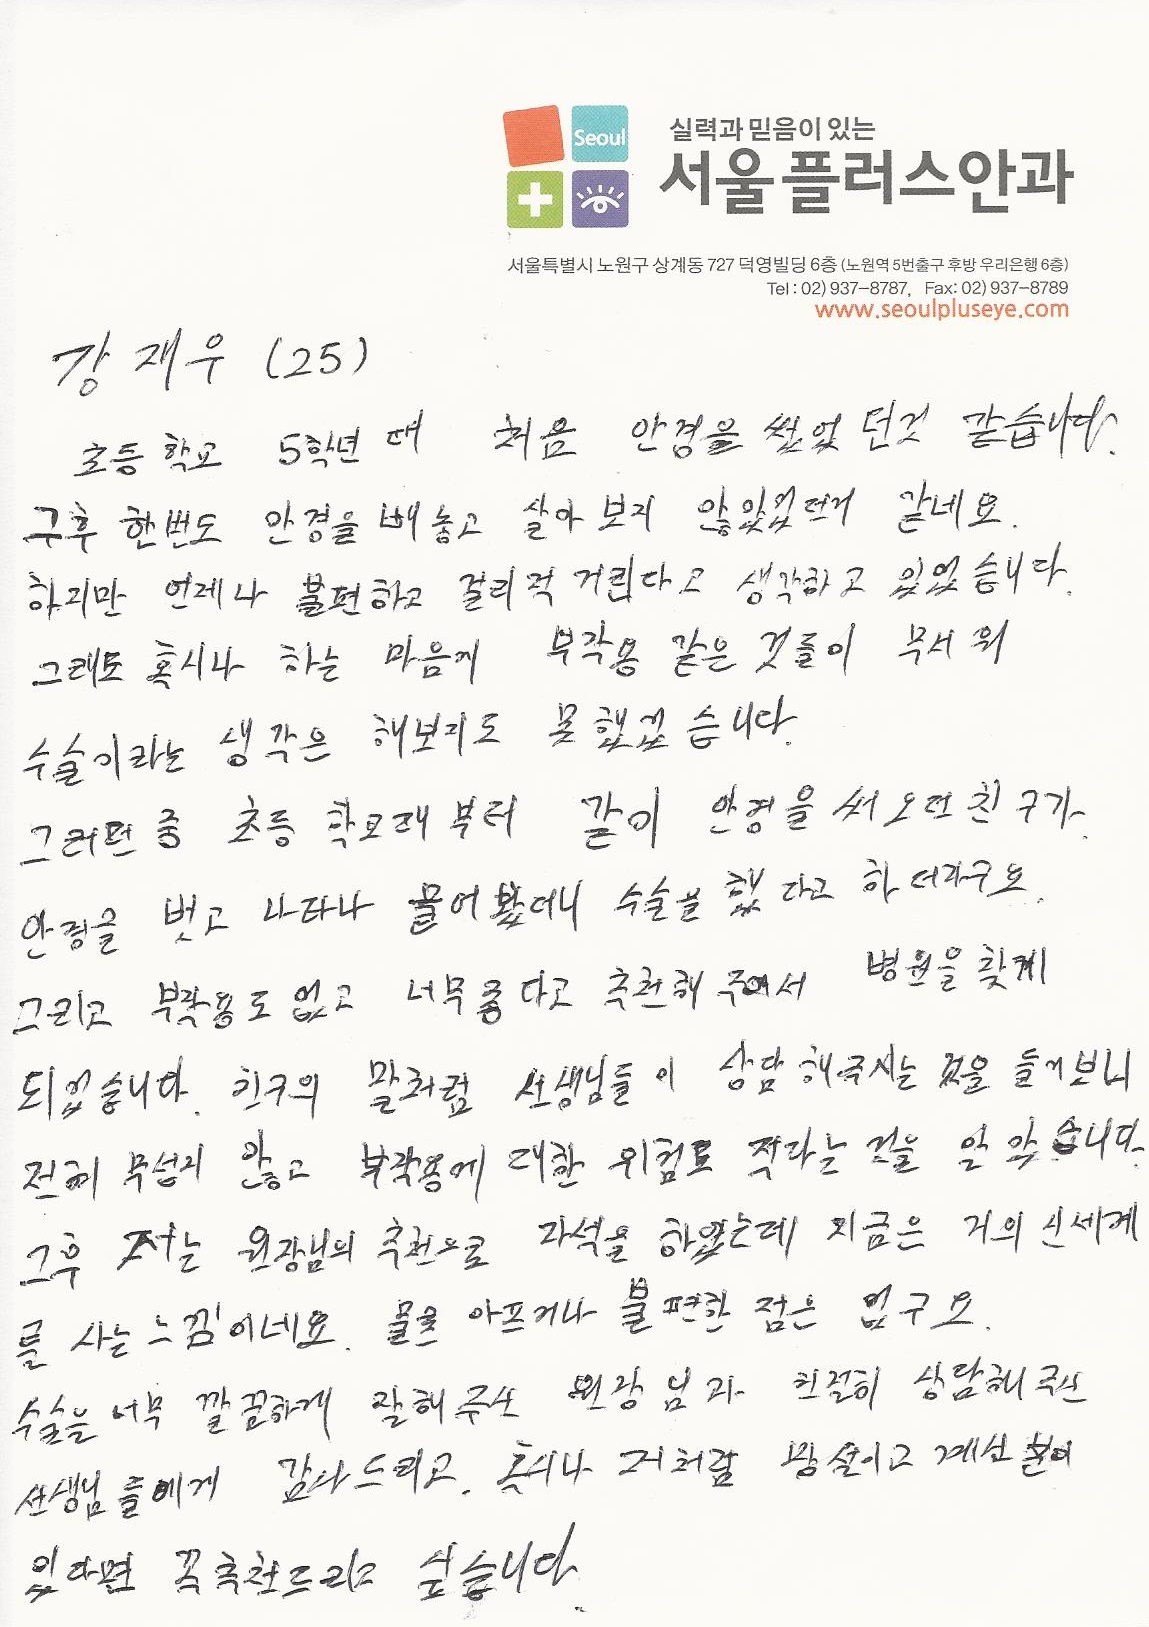 Seoul
실력과 믿음이 있는
서울플러스안과
서울특별시 노원구 상계동 727 덕영빌딩 6층 (노원역 5번출구 후방 우리은행 6층)
Tel : 02) 937-8787, Fax: 02) 937-8789
www.seoulpluseye.com
강재우 (25)
초등학교 5학년 때 처음 안경을 썼었던것 같습니다.
그후 한번도 안경을 빼놓고 살아 보지 않았었던거 같네요.
하지만 언제나 불편하고 걸리적 거린다고 생각하고 있었습니다.
그래도 혹시나 하는 마음에 부작용 같은 것들이 무서워
수술이라는 생각은 해보지도 못했었습니다.
그러던 중 초등학교때부터 같이 안경을 써오던 친구가
안경을 벗고 나타나 물어봤더니 수술을 했다고 하더라구요.
그리고 부작용도 없고 너무좋다고 추천해 주어서 병원을 찾게
되었습니다. 친구의 말처럼 선생님들이 상담해주시는 것을 들어보니
전혀 무섭지 않고 부작용에 대한 위험도 적다는 것을 알았습니다.
그후 저는 원장님의 추천으로 라섹을 하였는데 지금은 거의 신세계
를 사는 느낌이네요. 물론 아프거나 불편한 점은 없구요.
수술을 너무 깔끔하게 잘해주신 원장님과 친절히 상담해주신
선생님들에게 감사드리고. 혹시나 저처럼 망설이고 계신분이
있다면 꼭 추천드리고 싶습니다.